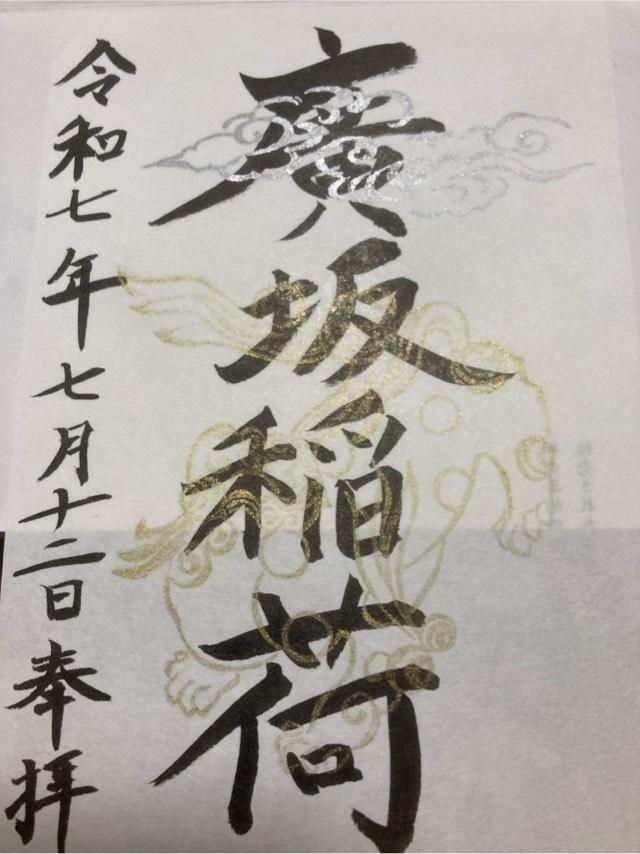 廣坂稲荷
令和七年七月十二日奉拝